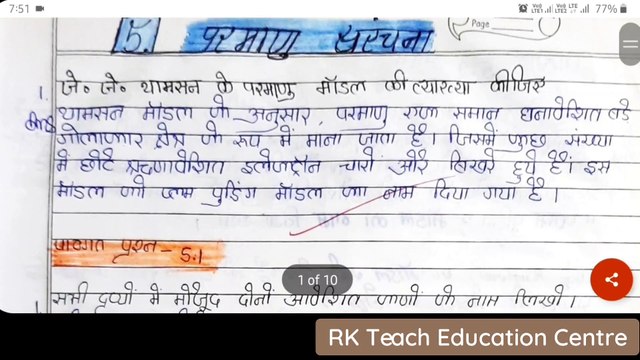 7:51
77%
5. परमाणु संरचना
Page
1. जे० जे० थामसन के परमाणु मॉडल की व्याख्या कीजिए
थामसन मॉडल के अनुसार, परमाणु एक समान धनावेशित बडे
गोलाकार क्षेत्र के रूप में माना जाता है। जिसमें कुछ संख्या
मे छोटे ऋणावेशित इलेक्ट्रॉन चारों ओर बिखरे हुये है। इस
मॉडल को प्लम पुडिंग मॉडल का नाम दिया गया है।
पाठगत प्रश्न - 5.1
1 of 10
सभी द्रव्यों में मौजूद दोनों आवेशित कणों के नाम लिखो।
RK Teach Education Centre